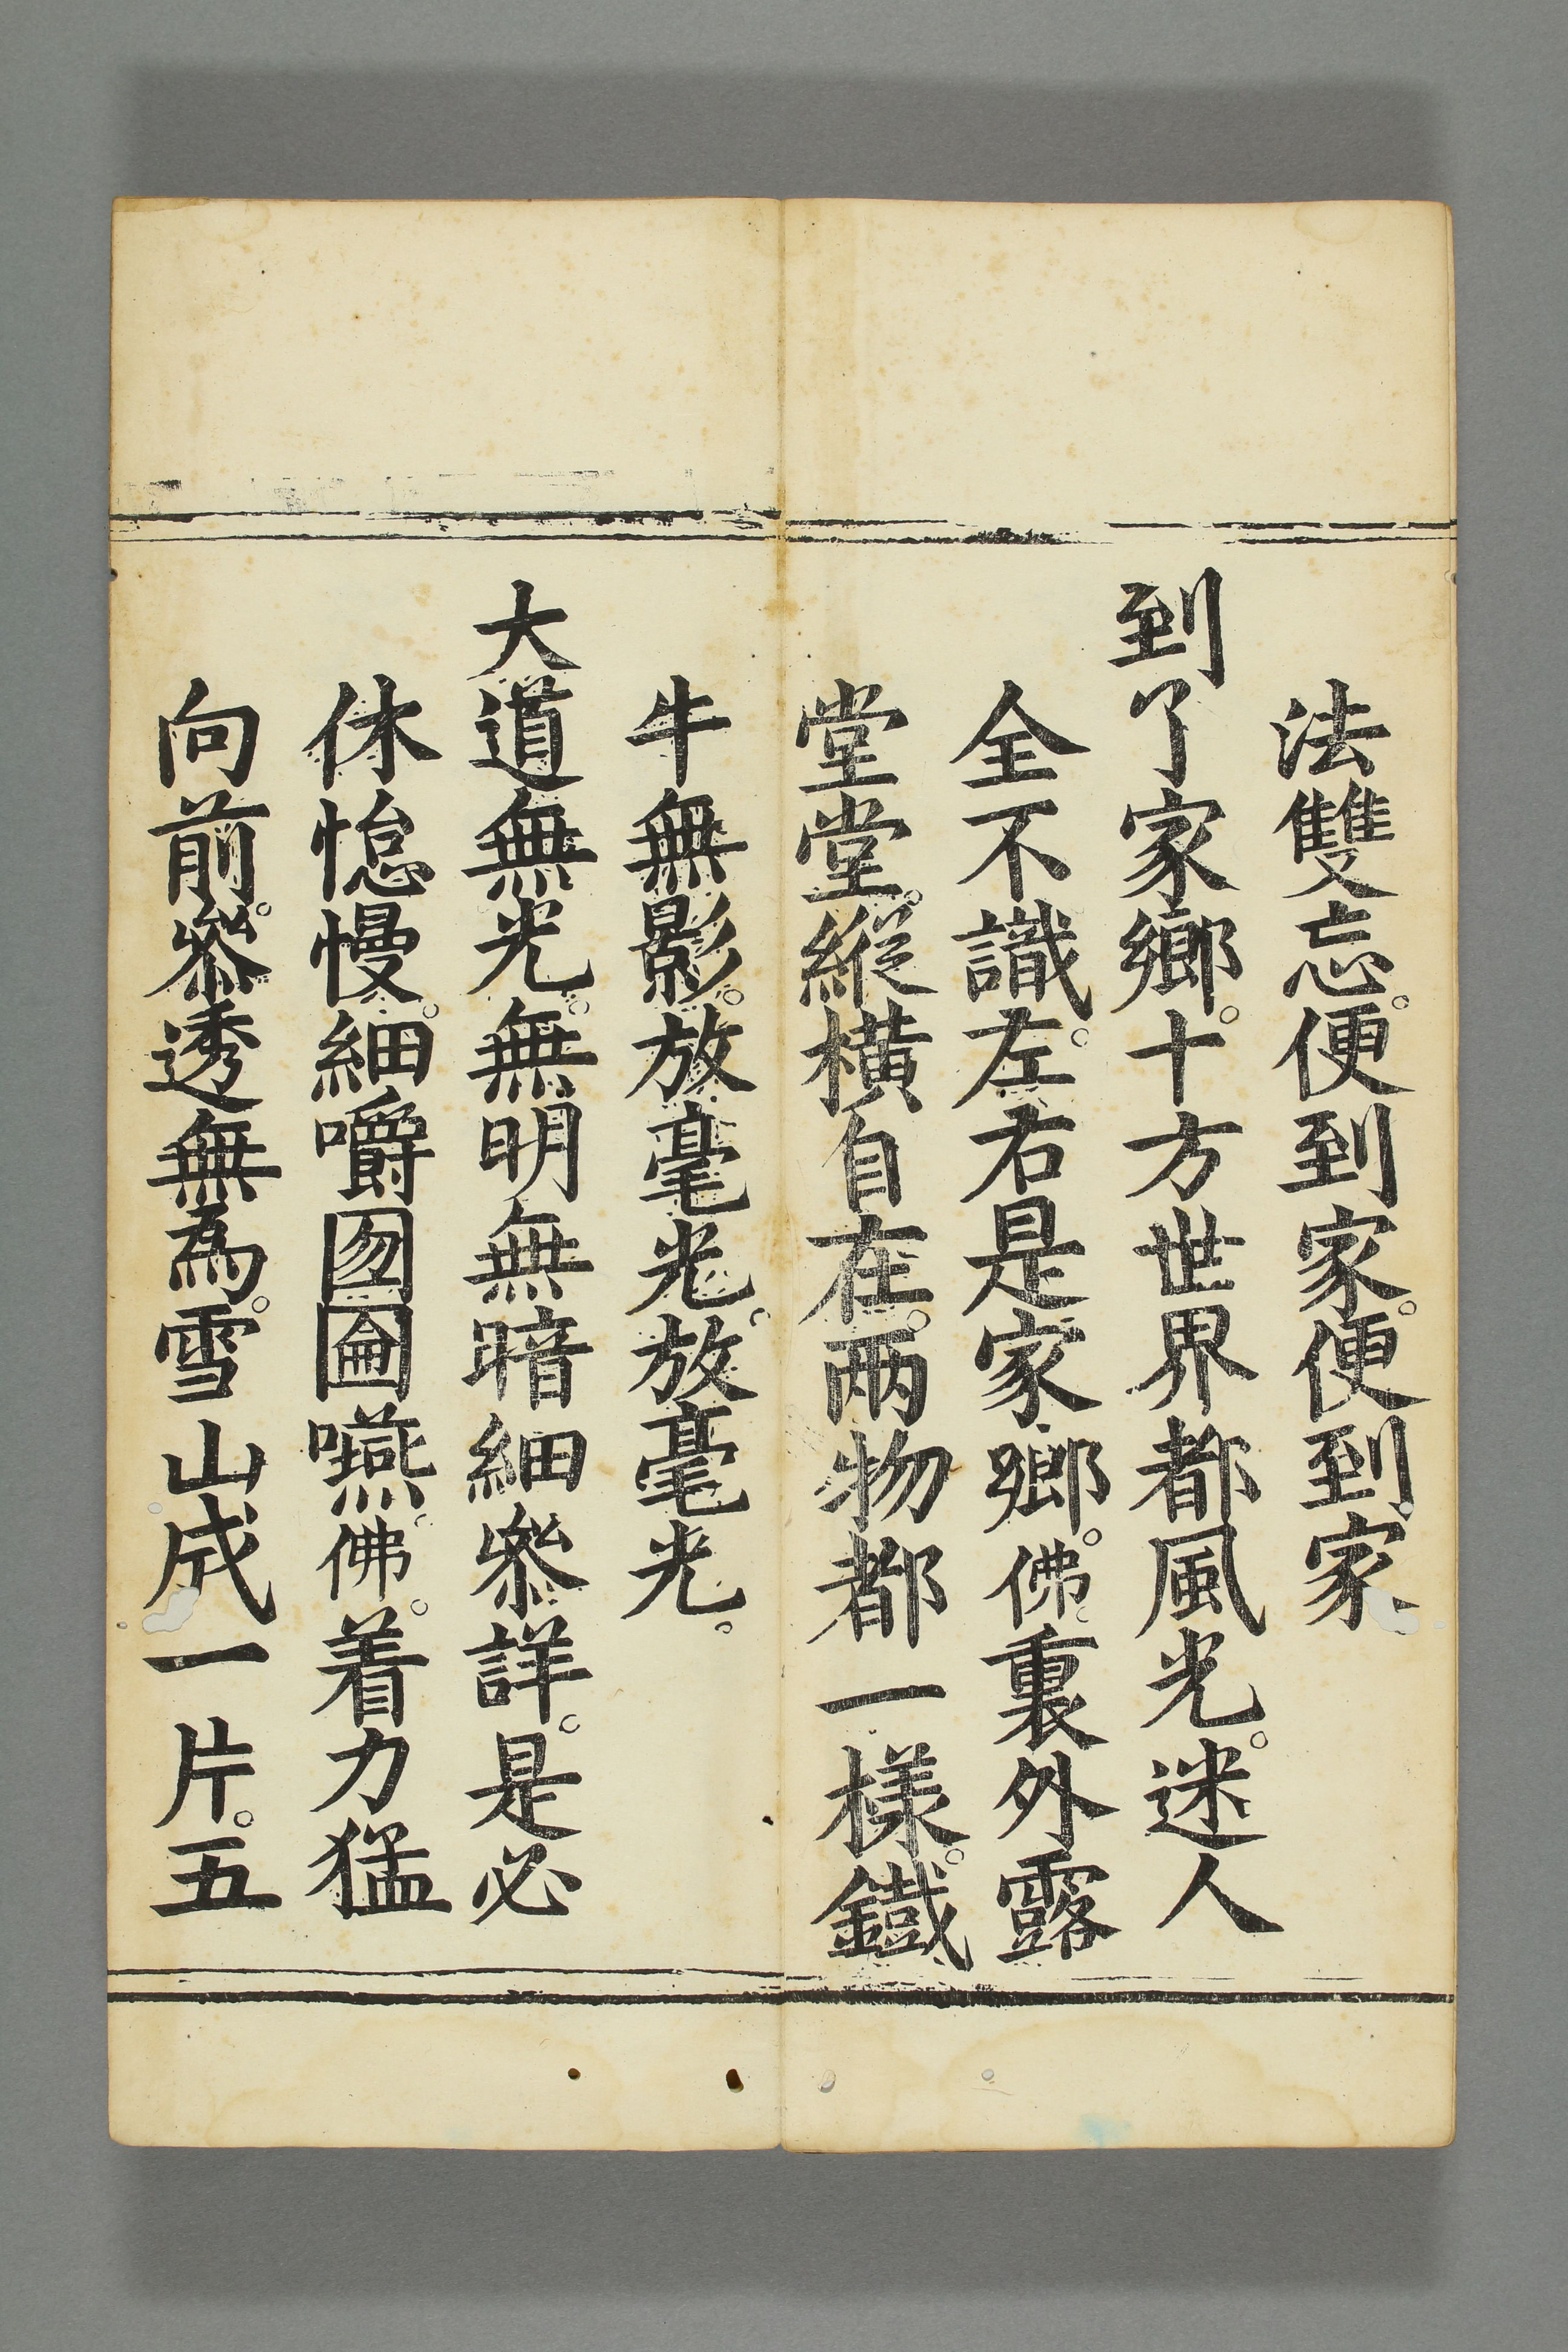 法雙忘。便到家。便到家。
到了家鄉。十方世界都風光。迷人
全不識。左右是家鄉。佛。裏外露
堂堂。縱橫自在。兩物都一樣。鐵
牛無影。放毫光。放毫光。
大道無光。無明無暗細叅詳。是必
休怠慢。細嚼囫圇嚥。佛。着力猛
向前。叅透無為。雪山成一片。五